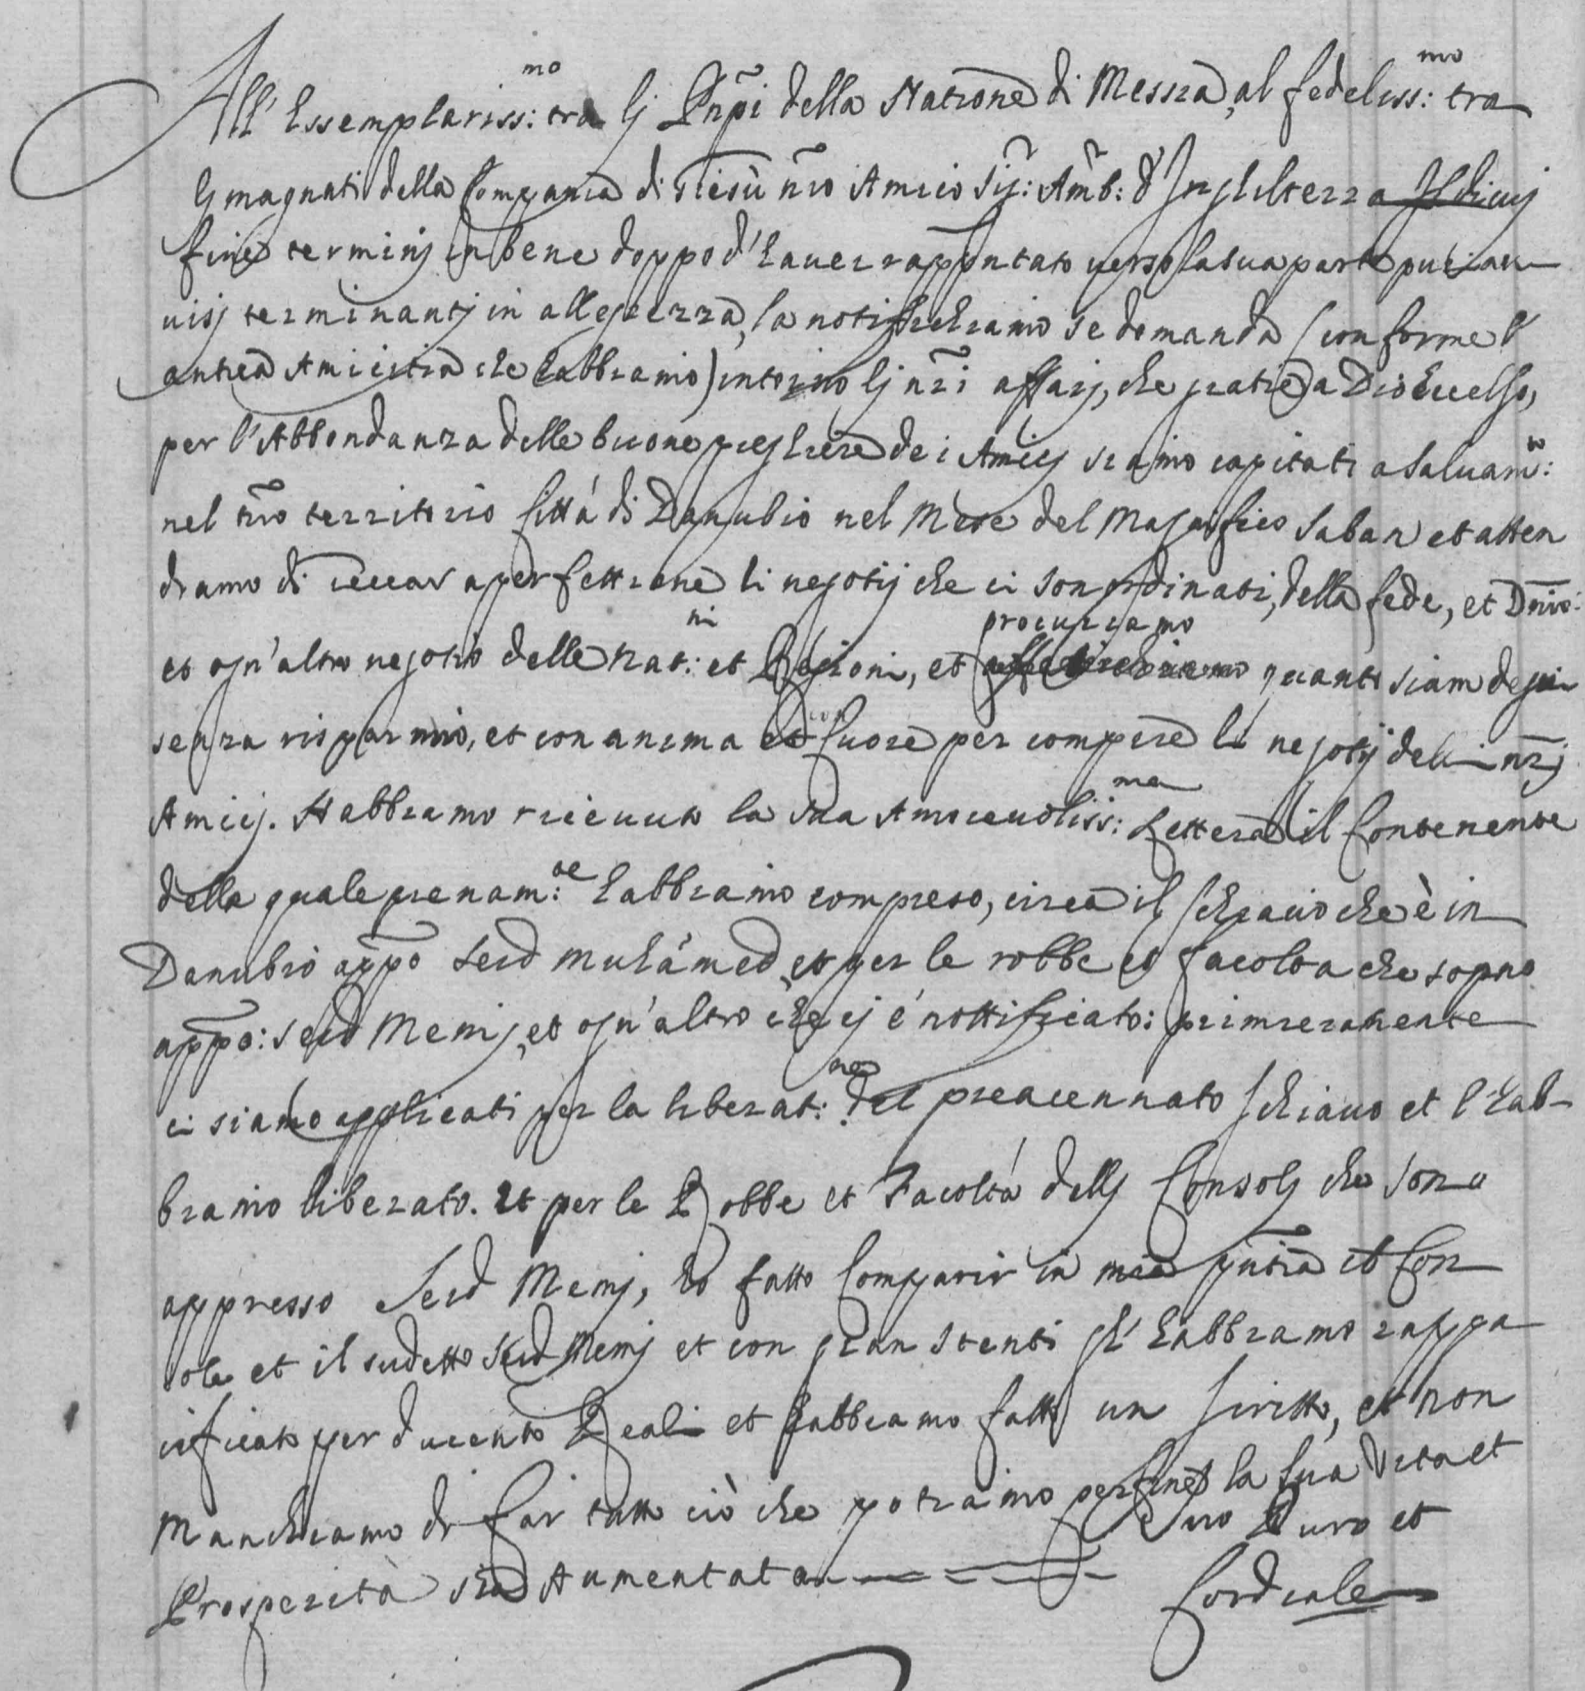 All' Essemplariss:mo tra lj Prnpi della Natione di Messia, al fedeliss:mo tra
lj magnati della Compania di Giesù nro Amico Sig:r Amb:r d'Inghilterra
fine terminj in bene doppo d'haver rappntato verso la sua parte puri au
uisj terminantj in allegrezza, la notifichiamo se domanda (conforme l'
antica Amicitia che habbiamo) intorno lj nri affarj, che gratie a Dio Eccelso,
per l'Abbondanza delle buone preghiere dei Amicj siamo capitati a salvam:to
nel nro territorio Città di Danubio nel Mese del Magnifico Saban et atten
diamo di leccar a perfettione li negotij che ci son ordinati, della fede, et Dnio:
et ogn'altro negotio delle nat:ni et Regioni, et procuriamo quanto siam degni
senza risparmio, et con anima et con Cuore per compire li negotij delli nrj
Amicj. Habbiamo riceuuto la sua Amoreuoliss:ma Lettera il Contenente
della quale pienam:te habbiamo compreso, circa il schiavo che è in
Danubio appo Seid Muhámed, et per le robbe et facolta che sopno
appo: Seid Memj, et ogn'altro che cj é nottificato: primieramente
ci siamo applicati per la liberat:ne del preacennato schiavo et l'hab-
biamo liberato. Et per le Robbe et Facoltá dellj Consolj che sono
appresso Seid Memj, ho fatto Comparir in mia pntia il Con
sole et il sudetto Seid Memj et con gran stenti gl'habbiamo rappa
cificato per ducento Reali et habbiamo fatto un scritto, et non
Manchiamo di far tutto ciò che potiamo per fine la sua Vita et
Prosperità sia Aumentata Suo Puro et
Cordiale